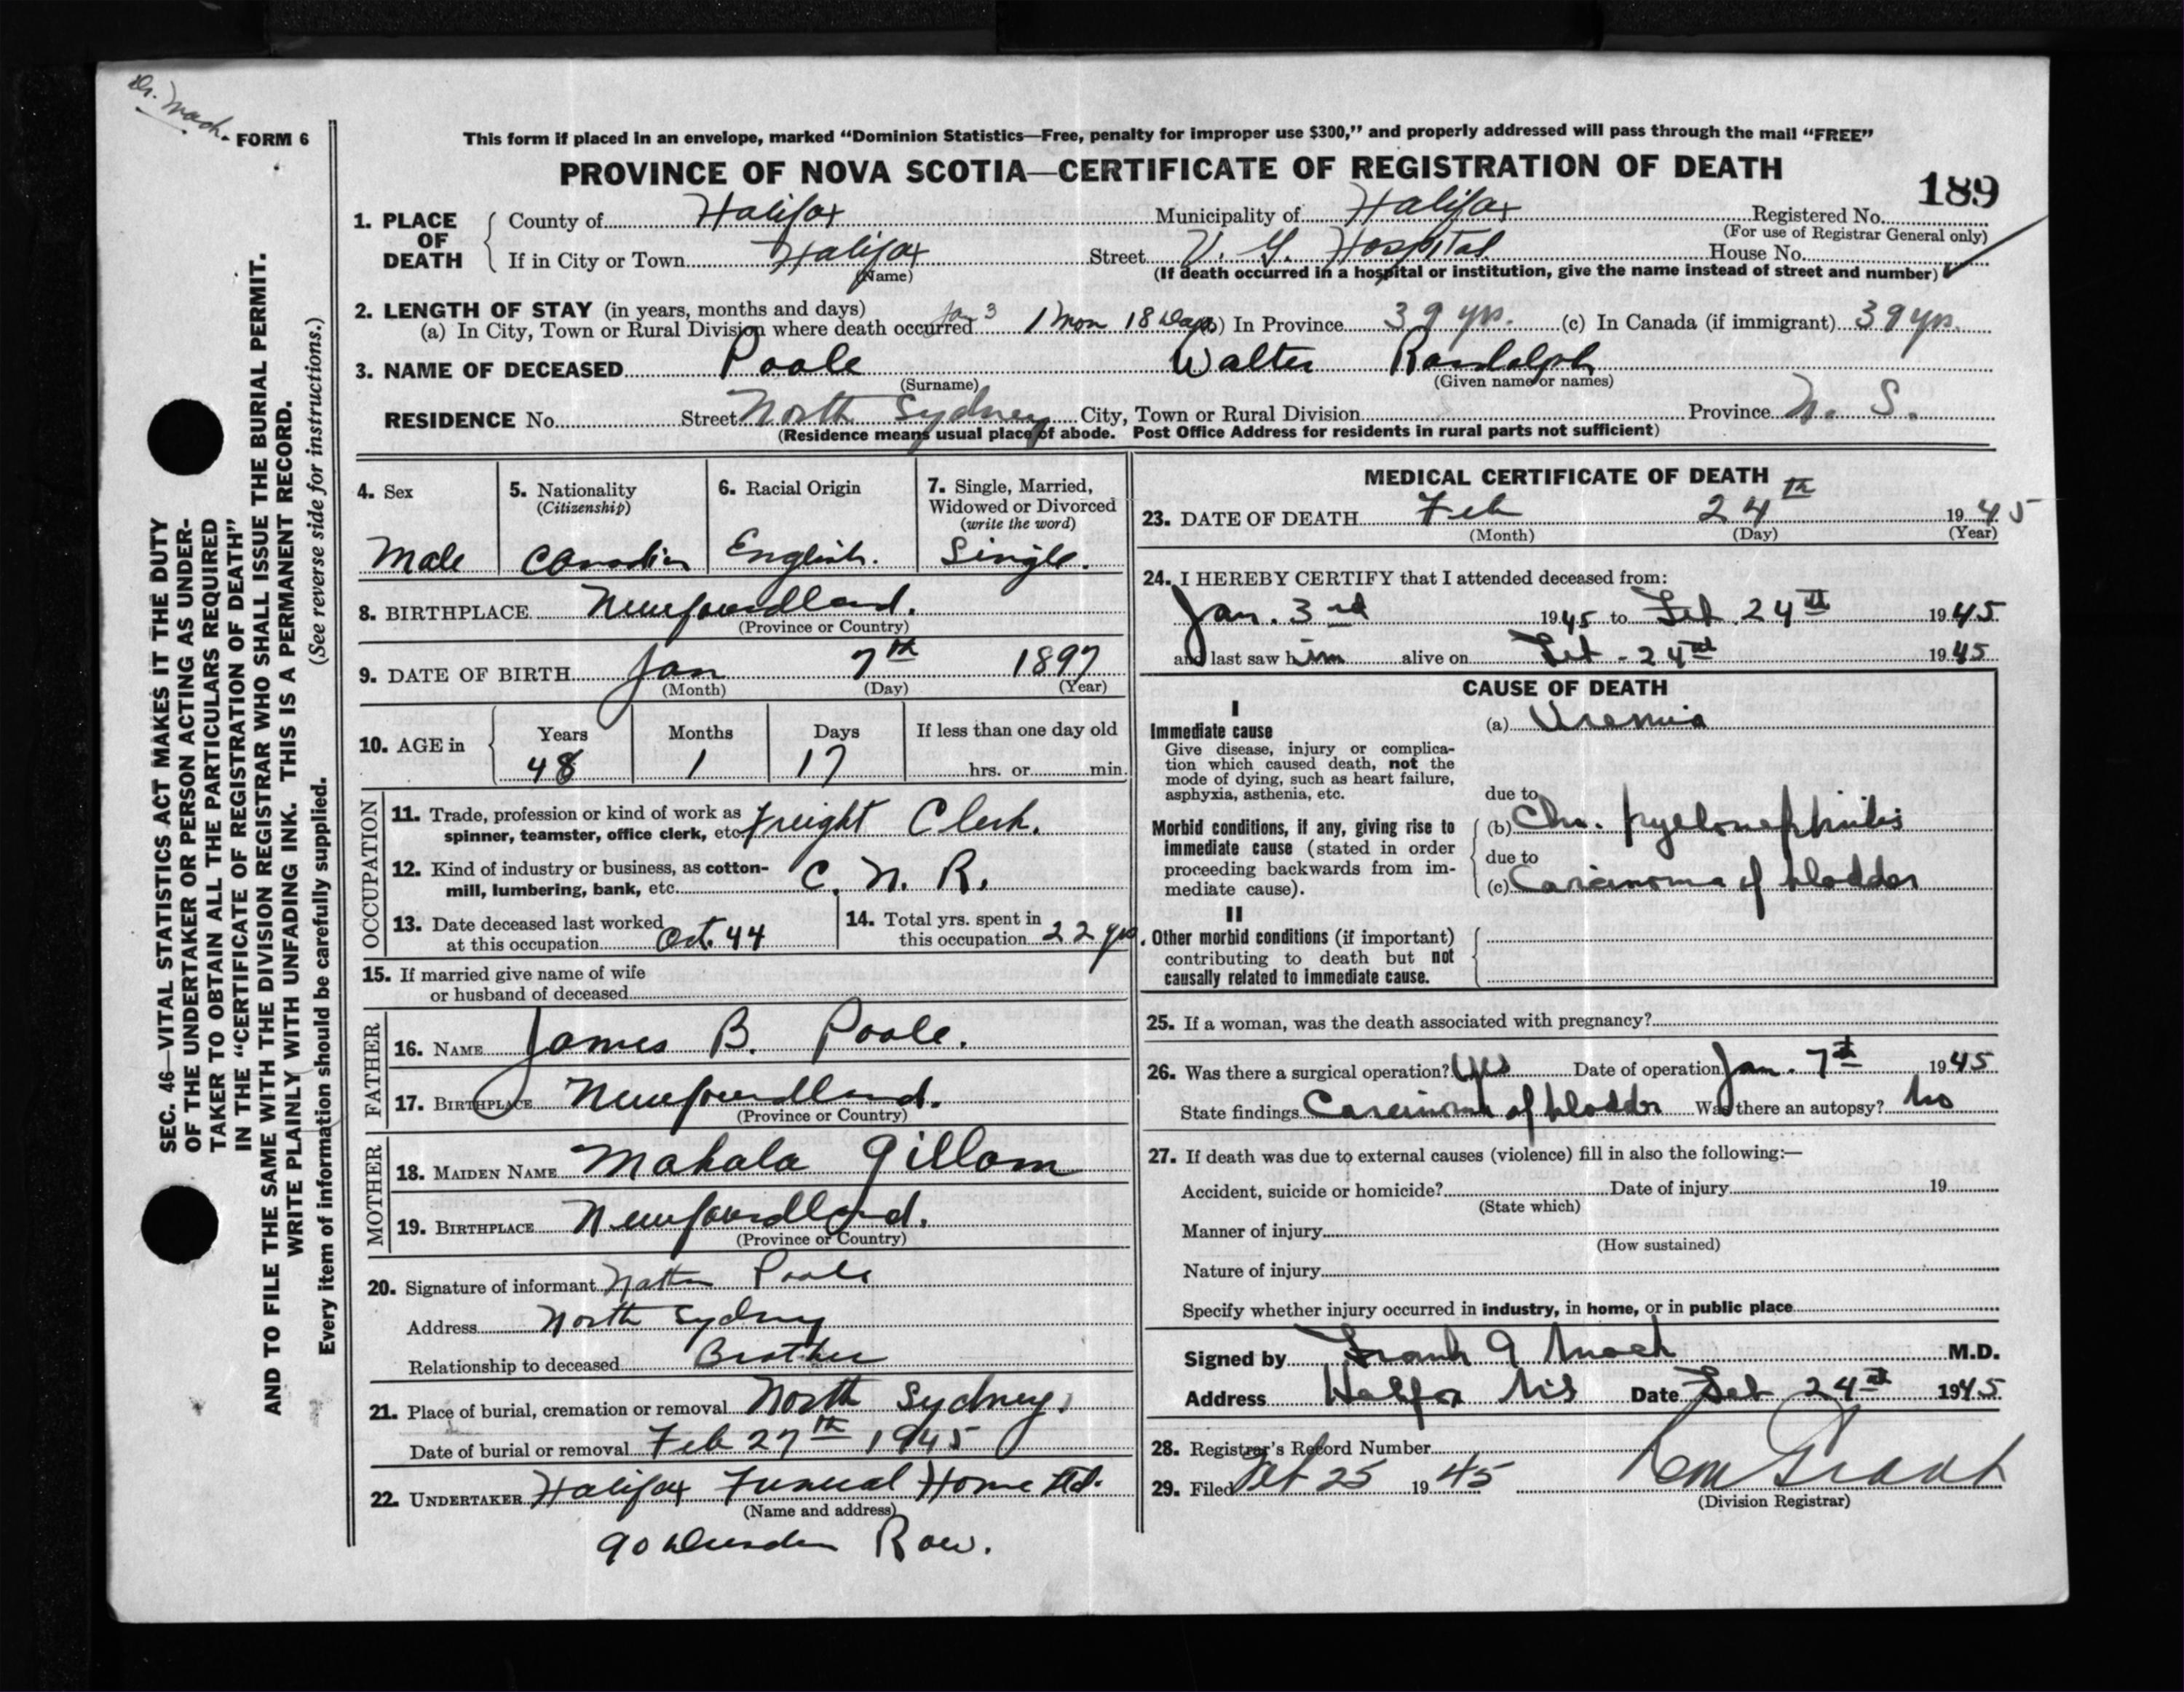 Dr. Mack.
FORM 6
This form if placed in an envelope, marked “Dominion Statistics—Free, penalty for improper use $300,” and properly addressed will pass through the mail “FREE”
PROVINCE OF NOVA SCOTIA—CERTIFICATE OF REGISTRATION OF DEATH
189
1. PLACE OF DEATH
County of Halifax Municipality of Halifax Registered No.
(For use of Registrar General only)
If in City or Town Halifax Street V. G. Hospital House No.
(Name) (If death occurred in a hospital or institution, give the name instead of street and number)
2. LENGTH OF STAY (in years, months and days)
(a) In City, Town or Rural Division where death occurred Jan 3 1 Mon 18 Days) In Province 39 yrs. (c) In Canada (if immigrant) 39 yrs.
3. NAME OF DECEASED Poole Walter Randolph
(Surname) (Given name or names)
RESIDENCE No. Street North Sydney City, Town or Rural Division Province N. S.
(Residence means usual place of abode. Post Office Address for residents in rural parts not sufficient)
4. Sex
Male
5. Nationality
(Citizenship)
Canadian
6. Racial Origin
English.
7. Single, Married,
Widowed or Divorced
(write the word)
Single.
8. BIRTHPLACE Newfoundland.
(Province or Country)
9. DATE OF BIRTH Jan 7th 1897
(Month) (Day) (Year)
10. AGE in
Years Months Days If less than one day old
48 1 17 hrs. or min.
OCCUPATION
11. Trade, profession or kind of work as
spinner, teamster, office clerk, etc. Freight Clerk.
12. Kind of industry or business, as cotton-
mill, lumbering, bank, etc. C. N. R.
13. Date deceased last worked
at this occupation Oct. 44
14. Total yrs. spent in
this occupation 22 yrs.
15. If married give name of wife
or husband of deceased
FATHER
16. NAME James B. Poole.
17. BIRTHPLACE Newfoundland.
(Province or Country)
MOTHER
18. MAIDEN NAME Mahala Gillam
19. BIRTHPLACE Newfoundland.
(Province or Country)
20. Signature of informant Poole
Address North Sydney
Relationship to deceased Brother
21. Place of burial, cremation or removal North Sydney.
Date of burial or removal Feb 27th 1945
22. UNDERTAKER Halifax Funeral Home Ltd.
(Name and address)
90 Row.
MEDICAL CERTIFICATE OF DEATH
23. DATE OF DEATH Feb 24th 1945
(Month) (Day) (Year)
24. I HEREBY CERTIFY that I attended deceased from:
Jan. 3rd 1945 to Feb. 24th 1945
and last saw him alive on Feb - 24th 1945
CAUSE OF DEATH
I
Immediate cause
Give disease, injury or complica-
tion which caused death, not the
mode of dying, such as heart failure,
asphyxia, asthenia, etc.
(a) Uremia
due to
Morbid conditions, if any, giving rise to
immediate cause (stated in order
proceeding backwards from im-
mediate cause).
(b) Chr. pyelonephritis
due to
(c) Carcinoma of bladder
II
Other morbid conditions (if important)
contributing to death but not
causally related to immediate cause.
25. If a woman, was the death associated with pregnancy?
26. Was there a surgical operation? Yes Date of operation Jan. 7th 1945
State findings Carcinoma of bladder Was there an autopsy? No
27. If death was due to external causes (violence) fill in also the following:—
Accident, suicide or homicide? Date of injury 19
(State which)
Manner of injury
(How sustained)
Nature of injury
Specify whether injury occurred in industry, in home, or in public place
Signed by Frank G Mack M.D.
Address Halifax N.S Date Feb 24th 1945
28. Registrar's Record Number
29. Filed Feb 25 1945
(Division Registrar)
SEC. 46—VITAL STATISTICS ACT MAKES IT THE DUTY
OF THE UNDERTAKER OR PERSON ACTING AS UNDER-
TAKER TO OBTAIN ALL THE PARTICULARS REQUIRED
IN THE “CERTIFICATE OF REGISTRATION OF DEATH”
AND TO FILE THE SAME WITH THE DIVISION REGISTRAR WHO SHALL ISSUE THE BURIAL PERMIT.
WRITE PLAINLY WITH UNFADING INK. THIS IS A PERMANENT RECORD.
Every item of information should be carefully supplied. (See reverse side for instructions.)